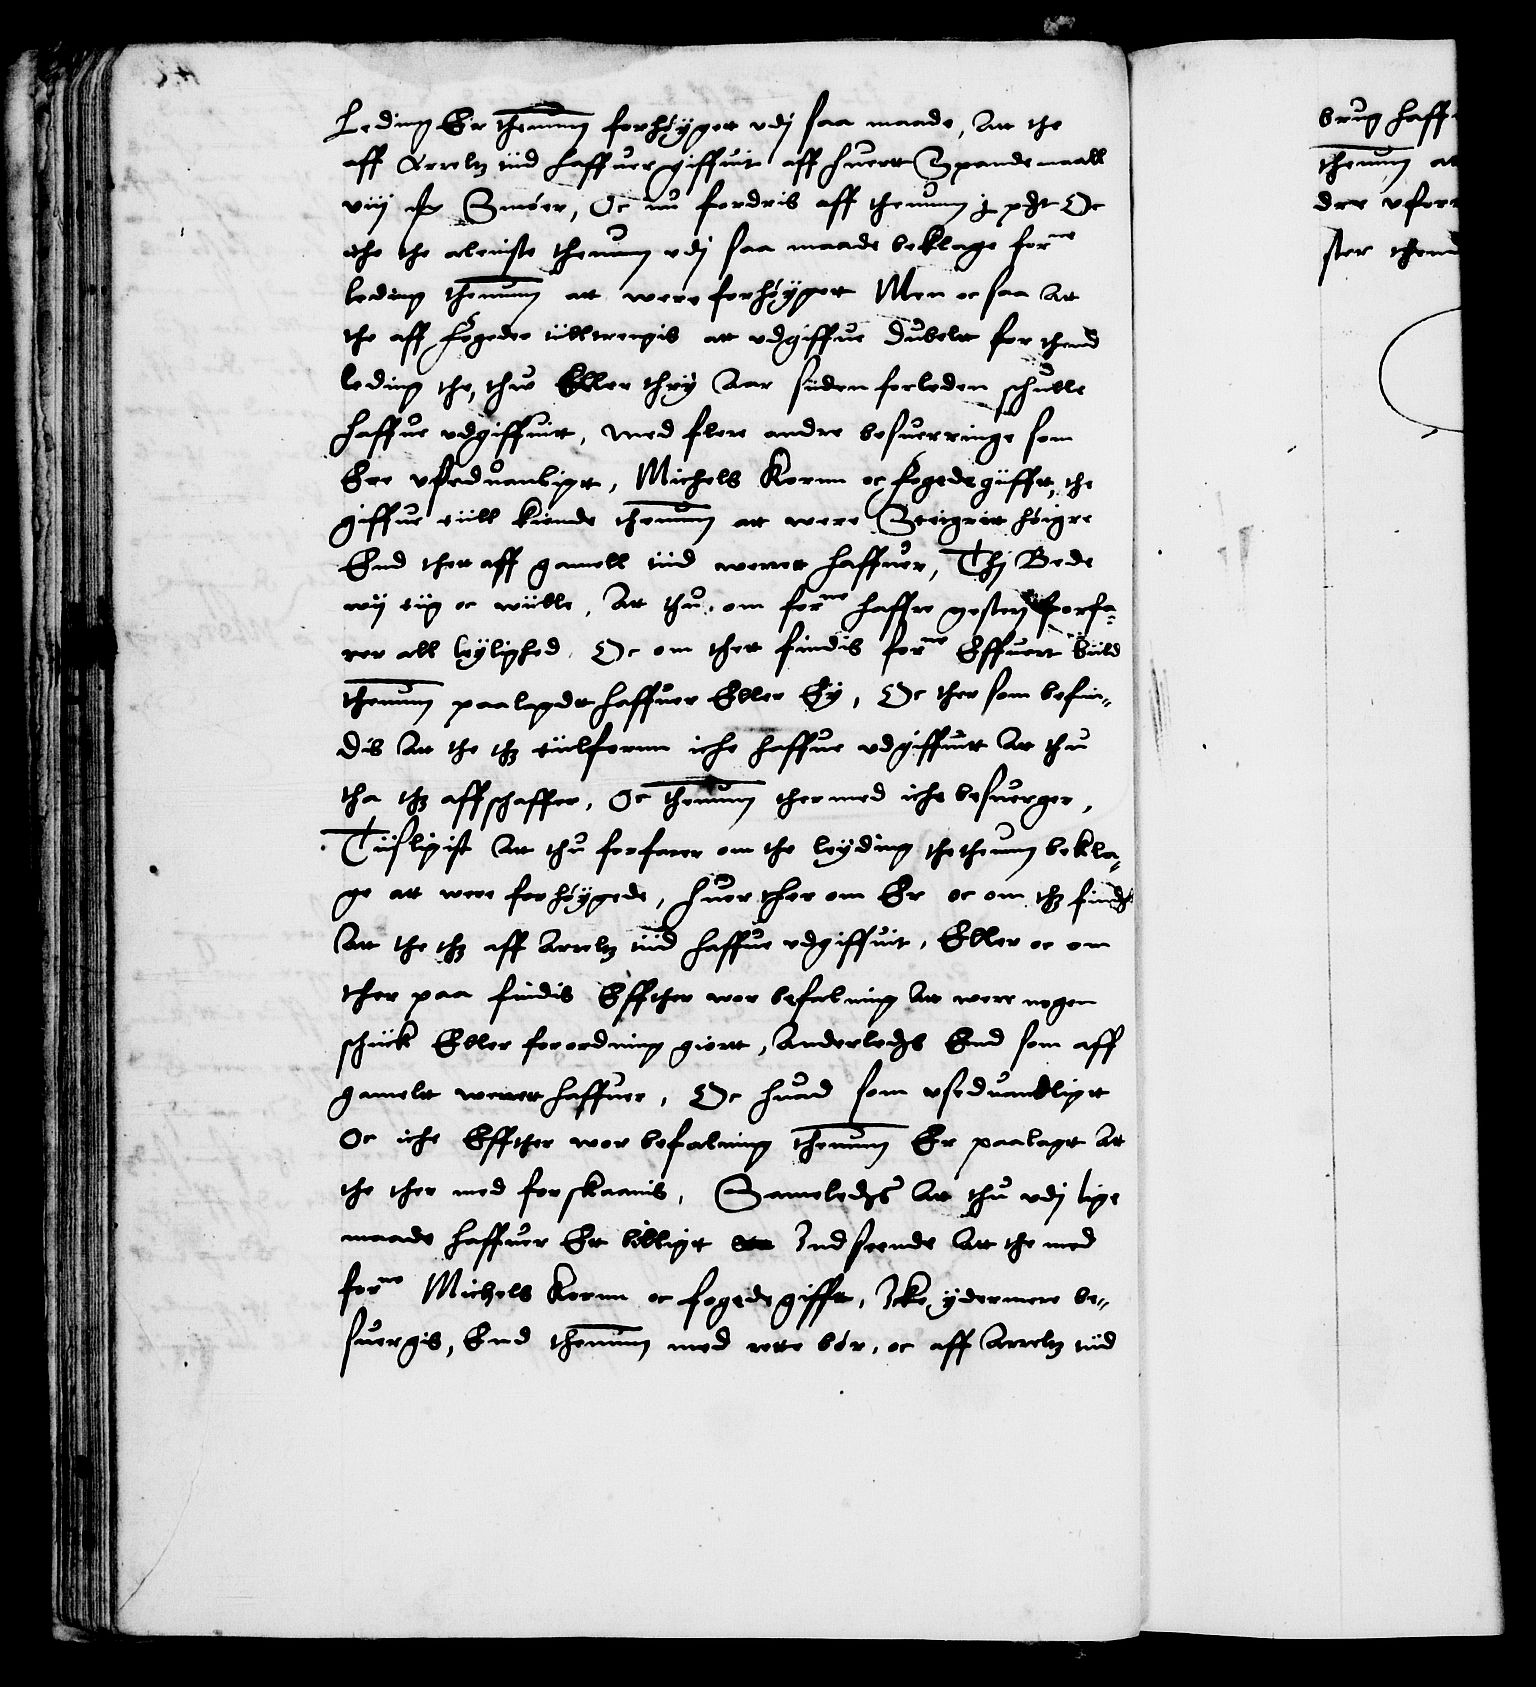 Leding Er thennum forhøyget vdj saa maade, Att the
aff Arreltz tiid haffuer giffuit aff huert Spandemaall
viij Smöer, Oc nu fordris aff thennum j pdt Oc
iche the aleniste thennum vdj saa maade beklage forne
leding thennum att were forhøyget Men oc saa Att
the aff fogeder tilltrengis att vdgiffue Dubelt for thend
leding the, thw Eller thrij Aar siiden forleden schulle
haffue vdgiffuitt, med flere andre besuerringe som
Ere vseduanligt, Michels Kornn oc fogedegiifft, the
giffue tiill kiende thennum att were Steigritt höigre
End thet aff gamell tiid werret haffuer, Thj Bede
wij tiig oc wiille, Att thu, om forne haffre gesterj forfa-
rer all leyliighed. Oc om thet findis forne Effuert Biild
thennum paalagdt haffuer Eller Ey, Oc ther som befin-
dis Att the thz tiilfornn iche haffue vdgiffuitt Att thu
tha thz affschaffer, Oc thennum thermed iche besuerger,
Tiisligist Att thu forfarer om the leyding the thennum bekla-
ge att were forhøygede, huer ther om Er oc om thz findis
Att the thz aff Arreltz tiid haffue vdgiffuit, Eller oc om
ther paa findis Effther wor befalning Att were nogen
schiick Eller forordning giort, Anderledis End som aff
gamelt werret haffuer, Oc huad som vseduandligt
Oc iche Effther wor befalning thennum Er paalagt Att
the ther med forskaanis, Sameledis Att thu vdj lige
maade haffuer Et billigt Indseende Att the med
forne Michels Kornn oc fogedegifft, Icke ydermere be-
suergis, End thennum med rette bör, oc aff Arreltz tiid
brug haff
thennum at
der vfor
ster thend